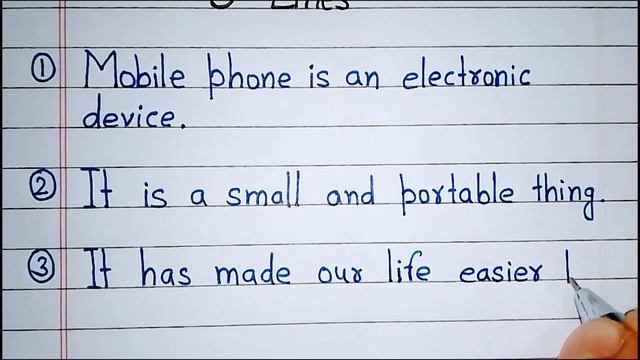 Lines
① Mobile phone is an electronic
device.
② It is a small and portable thing.
③ It has made our life easier